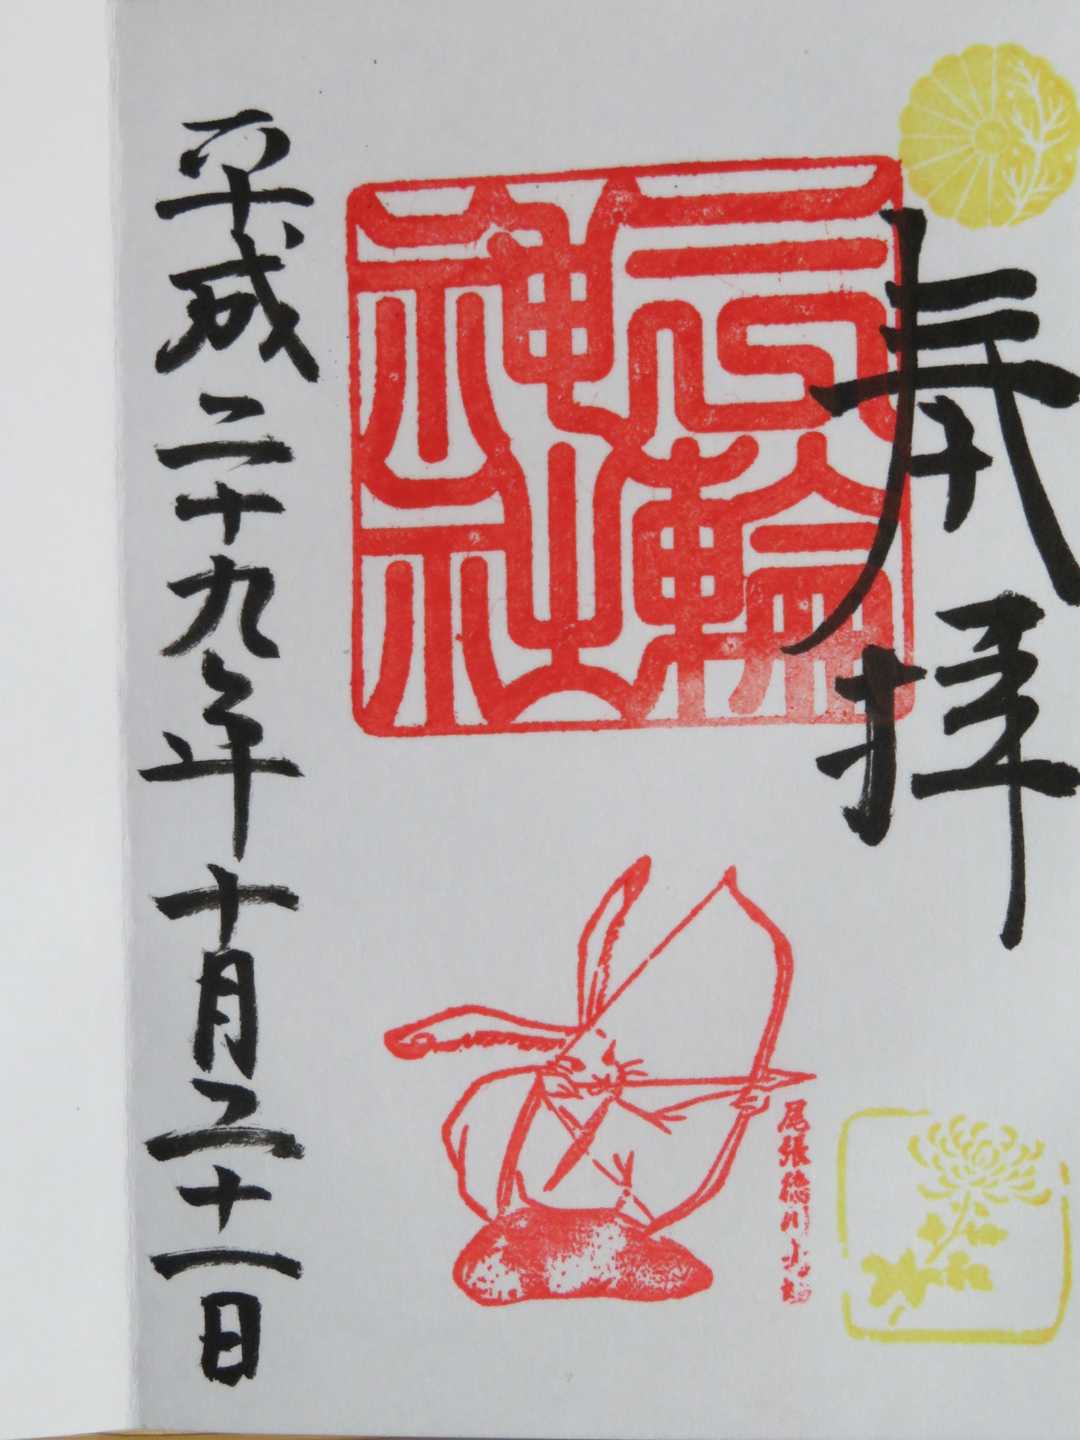 奉拝
三輪
神社
尾張徳川矢場
平成二十九年十月二十一日